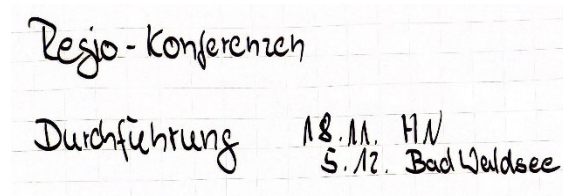 Regio-Konferenzen
Durchführung 18.11. HN
5.12. Bad Waldsee